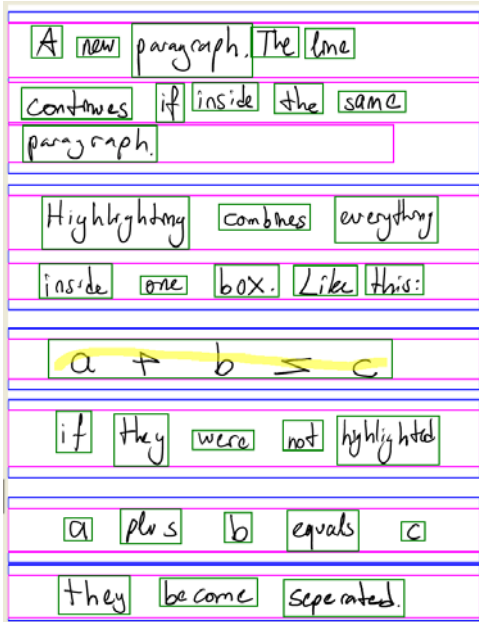 A new paragraph. The line
continues if inside the same
paragraph.
Highlighting combines everything
inside one box. Like this:
a + b = c
if they were not highlighted
a plus b equals c
they become seperated.